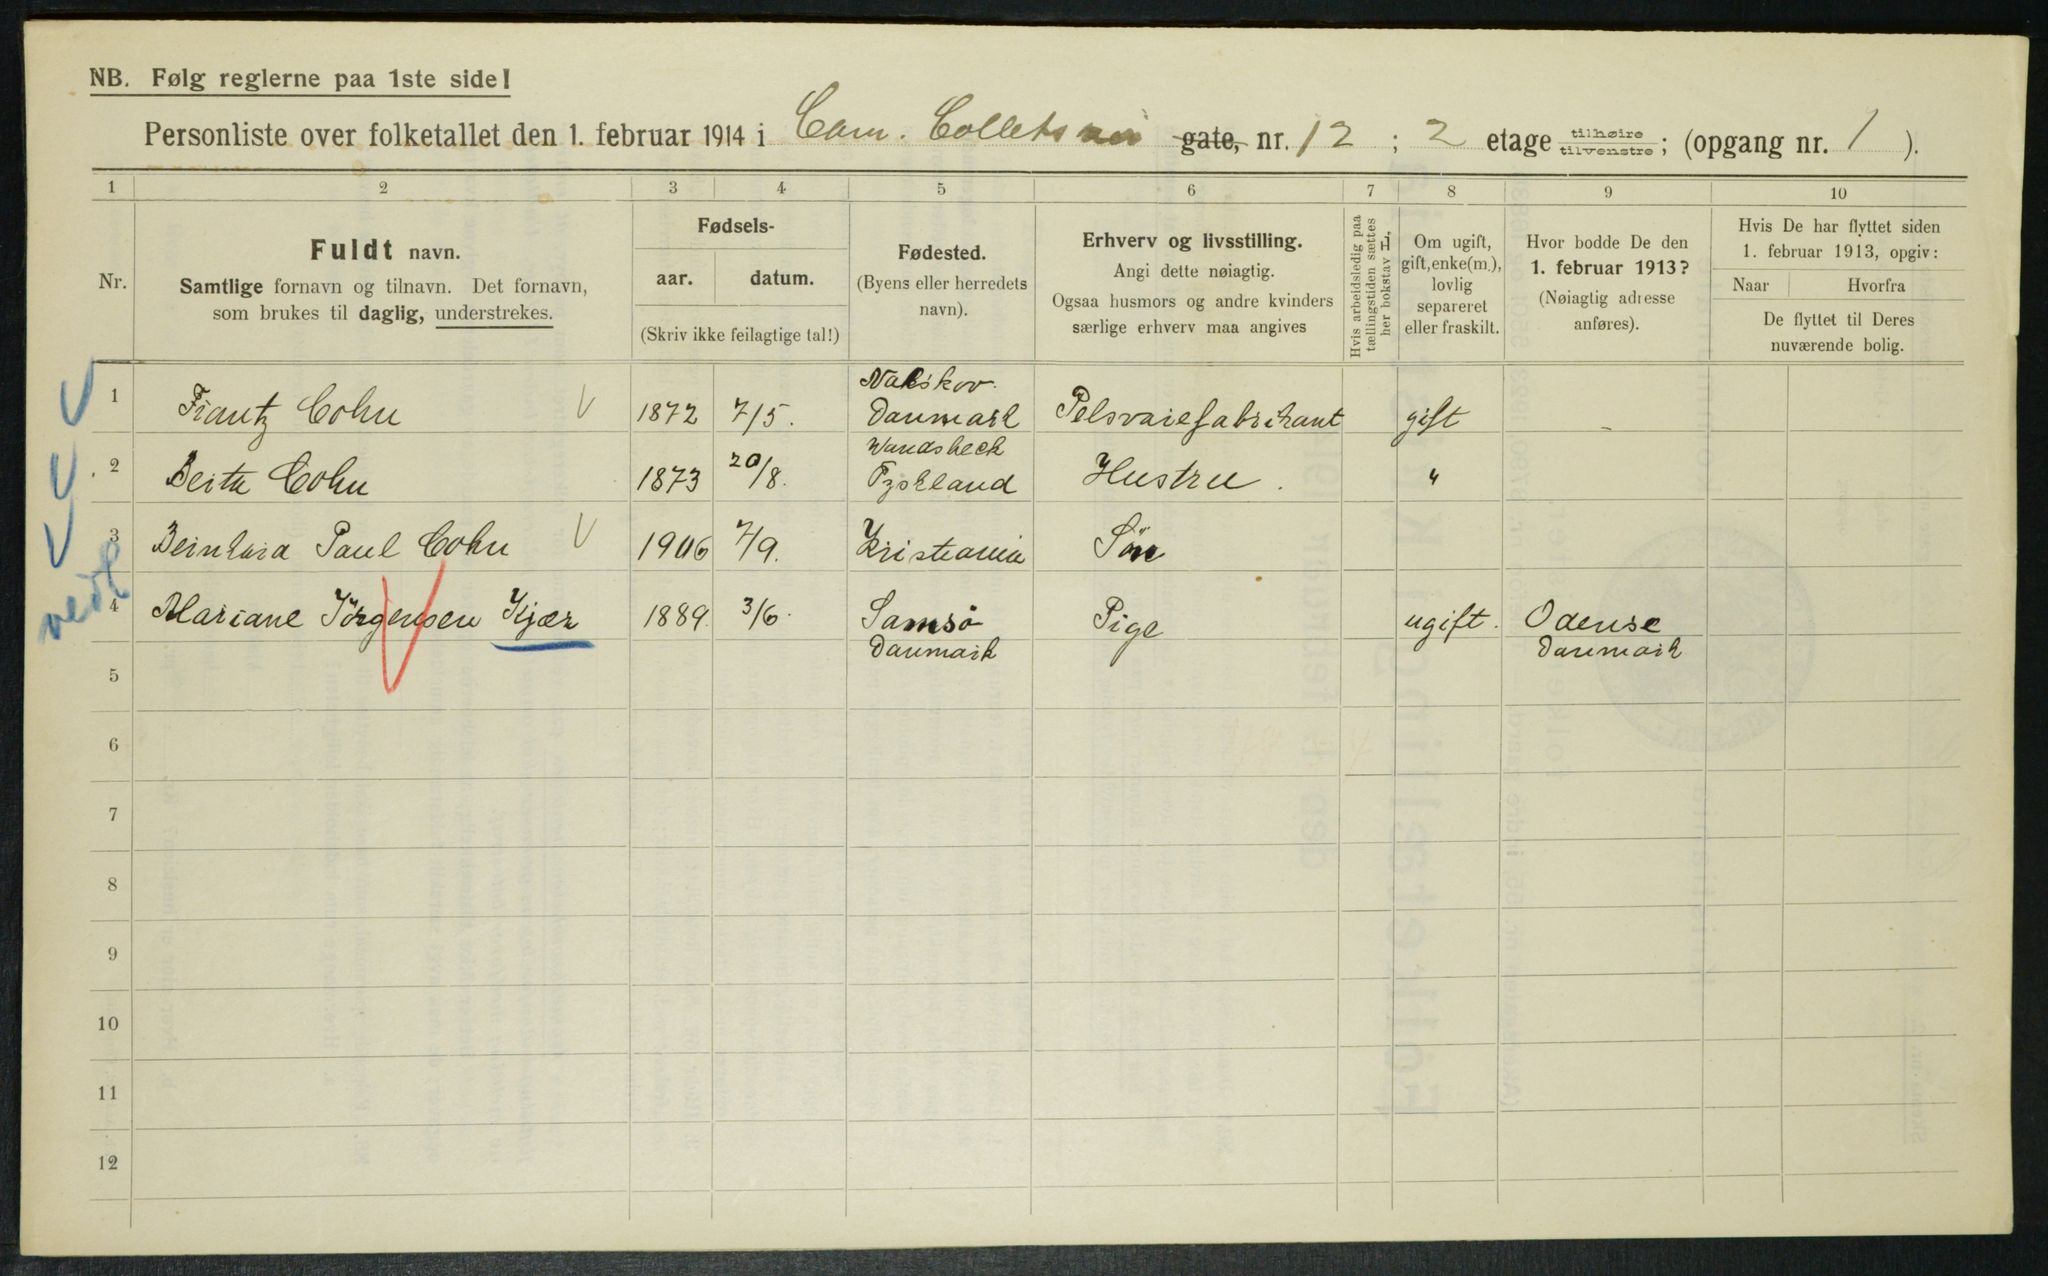 NB. Følg reglerne paa 1ste side!
Personliste over folketallet den 1. februar 1914 i Cam. Collets vei gate, nr. 12 ; 2 etage tilhøire tilvenstre; (opgang nr. 1 ).
1 2 3 4 5 6 7 8 9 10
Nr.
Fuldt navn.
Samtlige fornavn og tilnavn. Det fornavn,
som brukes til daglig, understrekes.
Fødsels-
aar. datum.
(Skriv ikke feilagtige tal!)
Fødested.
(Byens eller herredets
navn).
Erhverv og livsstilling.
Angi dette nøiagtig.
Ogsaa husmors og andre kvinders
særlige erhverv maa angives
Hvis arbeidsledig paa
tællingstiden sættes
her bokstav L,
Om ugift,
gift, enke(m.),
lovlig
separeret
eller fraskilt.
Hvor bodde De den
1. februar 1913?
(Nøiagtig adresse
anføres).
Hvis De har flyttet siden
1. februar 1913, opgiv:
Naar Hvorfra
De flyttet til Deres
nuværende bolig.
Nakskov.
1 Frantz Cohn V 1872 7/5. Danmark Pelsvarefabrikant gift -
Wandsbeck
2 Berta Cohn 1873 20/8. Tyskland Hustru. "
3 Bernhard Paul Cohn V 1906 7/9. Kristiania Søn
4 Mariane Jörgensen Kjær 1889. 3/6. Samsö Pige ugift. Odense
Danmark Danmark
5
6
7
8
9
10
11
12